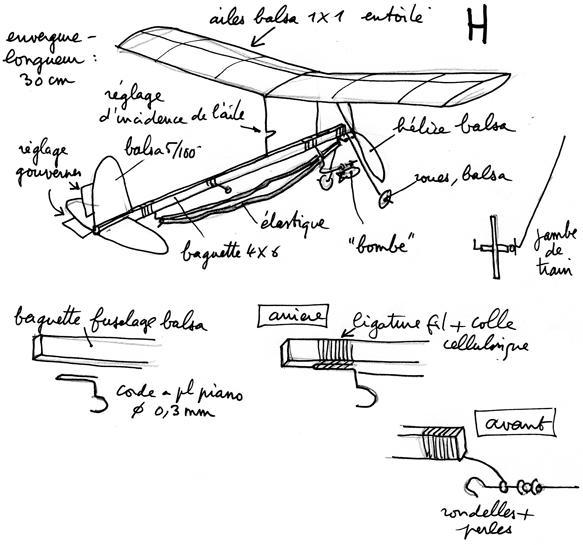 ailes balsa 1x1 entoilé
H
envergure -
longueur :
30 cm
réglage
d'incidence de l'aile
hélice balsa
balsa 5/100
réglage
gouvernes
roues, balsa
élastique
"bombe"
baguette 4x6
jambe
de
train
baguette fuselage balsa
arrière
ligature fil + colle
cellulosique
corde à piano
Ø 0,3 mm
avant
rondelles +
perles